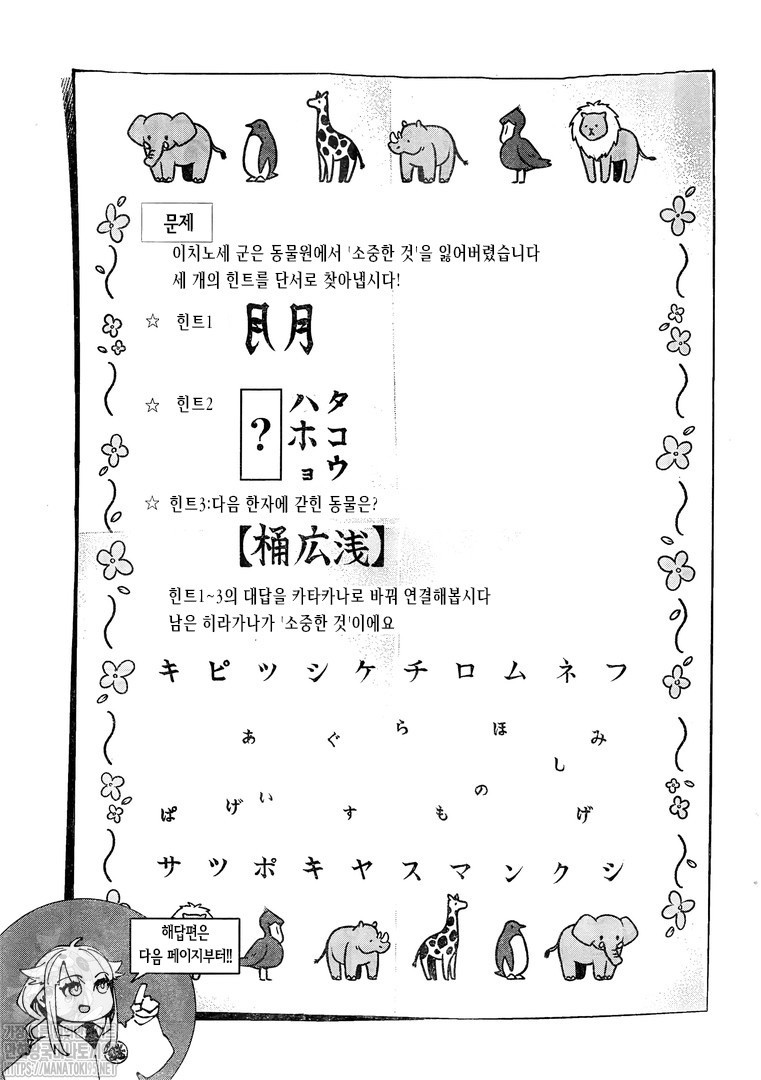 문제
이치노세 군은 동물원에서 '소중한 것'을 잃어버렸습니다
세 개의 힌트를 단서로 찾아냅시다!
☆ 힌트1
月月
☆ 힌트2
タコウ
ハホョ
?
☆ 힌트3:다음 한자에 갇힌 동물은?
【桶広浅】
힌트1~3의 대답을 카타카나로 바꿔 연결해봅시다
남은 히라가나가 '소중한 것'이에요
キ ピ ツ シ ケ チ ロ ム ネ フ
あ ぐ ら ほ み
し
ぱ げ い す も の げ
サ ツ ポ キ ヤ ス マ ン ク シ
해답편은
다음 페이지부터!!
HTTPS://MANATOKI95.NET